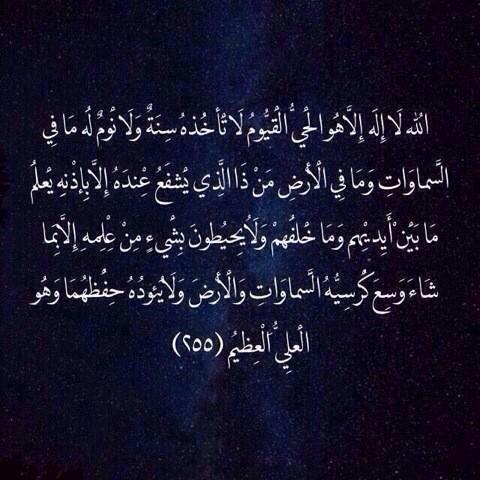 الله لَا إِلَٰهَ إِلَّا هُوَ الْحَيُّ الْقَيُّومُ لَا تَأْخُذُهُ سِنَةٌ وَلَا نَوْمٌ لَهُ مَا فِي
السَّمَاوَاتِ وَمَا فِي الْأَرْضِ مَنْ ذَا الَّذِي يَشْفَعُ عِنْدَهُ إِلَّا بِإِذْنِهِ يَعْلَمُ
مَا بَيْنَ أَيْدِيْهِم وَمَا خَلْفَهُمْ وَلَا يُحِيْطُونَ بِشَيْءٍ مِنْ عِلْمِهِ إِلَّا بِمَا
شَاءَ وَسِعَ كُرْسِيُّهُ السَّمَاوَاتِ وَالْأَرْضَ وَلَا يَئُودُهُ حِفْظُهُمَا وَهُوَ
الْعَلِيُّ الْعَظِيمُ (٢٥٥)